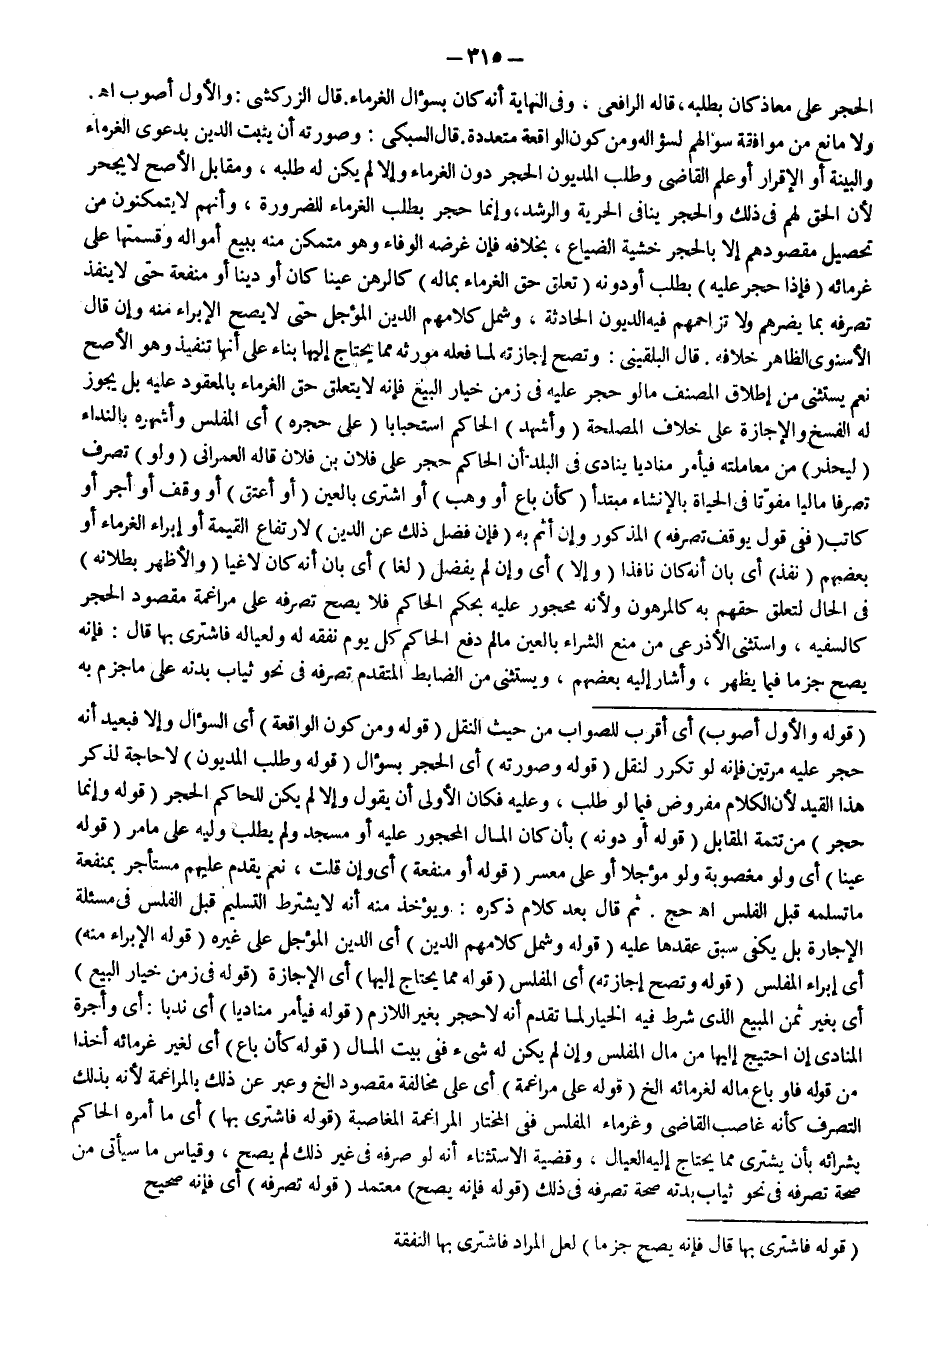 — ٣١٥ —
الحجر على معاذ كان بطلبه، قاله الرافعى ، وفى النهاية أنه كان بسؤال الغرماء. قال الزركشى : والأول أصوب اه .
ولا مانع من موافقة سؤالهم لسؤاله ومن كون الواقعة متعددة. قال السبكى : وصورته أن يثبت الدين بدعوى الغرماء
والبينة أو الإقرار أو علم القاضى وطلب المديون الحجر دون الغرماء وإلا لم يكن له طلبه ، ومقابل الأصح لا يحجر
لأن الحق لهم فى ذلك والحجر ينافى الحرية والرشد، وإنما حجر بطلب الغرماء للضرورة ، وأنهم لا يتمكنون من
تحصيل مقصودهم إلا بالحجر خشية الضياع ، بخلافه فإن غرضه الوفاء وهو متمكن منه ببيع أمواله وقسمتها على
غرمائه ( فإذا حجر عليه ) بطلب أو دونه ( تعلق حق الغرماء بماله ) كالرهن عينا كان أو دينا أو منفعة حتى لا ينفذ
تصرفه بما يضرهم ولا تزاحمهم فيه الديون الحادثة ، وشمل كلامهم الدين المؤجل حتى لا يصح الإبراء منه وإن قال
الأسنوى الظاهر خلافه . قال البلقينى : وتصح إجازته لما فعله مورثه مما يحتاج إليها بناء على أنها تنفيذ وهو الأصح
نعم يستثنى من إطلاق المصنف مالو حجر عليه فى زمن خيار البيع فإنه لا يتعلق حق الغرماء بالمعقود عليه بل يجوز
له الفسخ والإجازة على خلاف المصلحة ( وأشهد ) الحاكم استحبابا ( على حجره ) أى المفلس وأشهره بالنداء
( ليحذر) من معاملته فيأمر مناديا ينادى فى البلد أن الحاكم حجر على فلان بن فلان قاله العمرانى ( ولو ) تصرف
تصرفا ماليا مفوّتا فى الحياة بالإنشاء مبتدأ ( كأن باع أو وهب ) أو اشترى بالعين ( أو أعتق ) أو وقف أو أجر أو
كاتب ( ففى قول يوقف تصرفه ) المذكور وإن أثم به ( فإن فضل ذلك عن الدين ) لارتفاع القيمة أو إبراء الغرماء أو
بعضهم ( نفذ) أى بان أنه كان نافذا ( وإلا ) أى وإن لم يفضل ( لغا ) أى بان أنه كان لاغيا ( والأظهر بطلانه )
فى الحال لتعلق حقهم به كالمرهون ولأنه محجور عليه بحكم الحاكم فلا يصح تصرفه على مراغمة مقصود الحجر
كالسفيه ، واستثنى الأذرعى من منع الشراء بالعين مالم دفع الحاكم كل يوم نفقه له ولعياله فاشترى بها قال : فإنه
يصح جزما فيما يظهر ، وأشار إليه بعضهم ، ويستثنى من الضابط المتقدم تصرفه فى نحو ثياب بدنه على ماجزم به
( قوله والأول أصوب) أى أقرب للصواب من حيث النقل ( قوله ومن كون الواقعة ) أى السؤال وإلا فبعيد أنه
حجر عليه مرتين فإنه لو تكرر لنقل ( قوله وصورته ) أى الحجر بسؤال ( قوله وطلب المديون ) لا حاجة لذكر
هذا القيد لأن الكلام مفروض فيما لو طلب ، وعليه فكان الأولى أن يقول وإلا لم يكن للحاكم الحجر ( قوله وإنما
حجر ) من تتمة المقابل ( قوله أو دونه ) بأن كان المال المحجور عليه أو مسجد ولم يطلب وليه على مامر ( قوله
عينا ) أى ولو مغصوبة ولو مؤجلا أو على معسر ( قوله أو منفعة ) أى وإن قلت ، نعم يقدم عليهم مستأجر بمنفعة
ماتسلمه قبل الفلس اه حج . ثم قال بعد كلام ذكره : ويؤخذ منه أنه لا يشترط التسليم قبل الفلس فى مسئلة
الإجارة بل يكفى سبق عقدها عليه ( قوله وشمل كلامهم الدين ) أى الدين المؤجل على غيره ( قوله الإبراء منه)
أى إبراء المفلس ( قوله وتصح إجازته) أى المفلس ( قوله مما يحتاج إليها ) أى الإجازة (قوله فى زمن خيار البيع )
أى بغير ثمن المبيع الذى شرط فيه الخيار لما تقدم أنه لا حجر بغير اللازم ( قوله فيأمر مناديا ) أى ندبا : أى وأجرة
المنادى إن احتيج إليها من مال المفلس وإن لم يكن له شىء ففى بيت المال ( قوله كأن باع ) أى لغير غرمائه أخذا
من قوله فلو باع ماله لغرمائه الخ ( قوله على مراغمة ) أى على مخالفة مقصود الخ وعبر عن ذلك بالمراغمة لأنه بذلك
التصرف كأنه غاصب القاضى وغرماء المفلس ففى المختار المراغمة المغاصبة (قوله فاشترى بها ) أى ما أمره الحاكم
بشرائه بأن يشترى مما يحتاج إليه العيال ، وقضية الاستثناء أنه لو صرفه فى غير ذلك لم يصح ، وقياس ما سيأتى من
صحة تصرفه فى نحو ثياب بدنه صحة تصرفه فى ذلك (قوله فإنه يصح) معتمد ( قوله تصرفه ) أى فإنه صحيح
( قوله فاشترى بها قال فإنه يصح جزما ) لعل المراد فاشترى بها النفقة